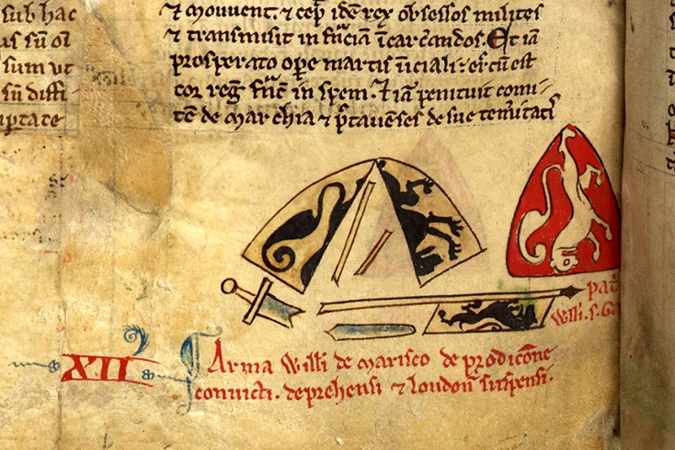 sub hac
us sũ oĩ
sum ut
sũ diffi-
⁊ mouuent. ⁊ cep̃ idẽ rex obsessos milites
⁊ transmisit in frãciã ĩcarc̃andos. Et iã
prosperato oꝑe martis ĩiciali. er̃cũ est
cor reg̃ frñc in spem. Et iã penituit comi-
tẽ de marchia ⁊ p̃tauenses de sue tem̃itatis
pat̃
Willi. s. Ga
XII
Arma Willi de marisco de prodicõne
conuicti. deprehensi ⁊ london̄ suspensi.